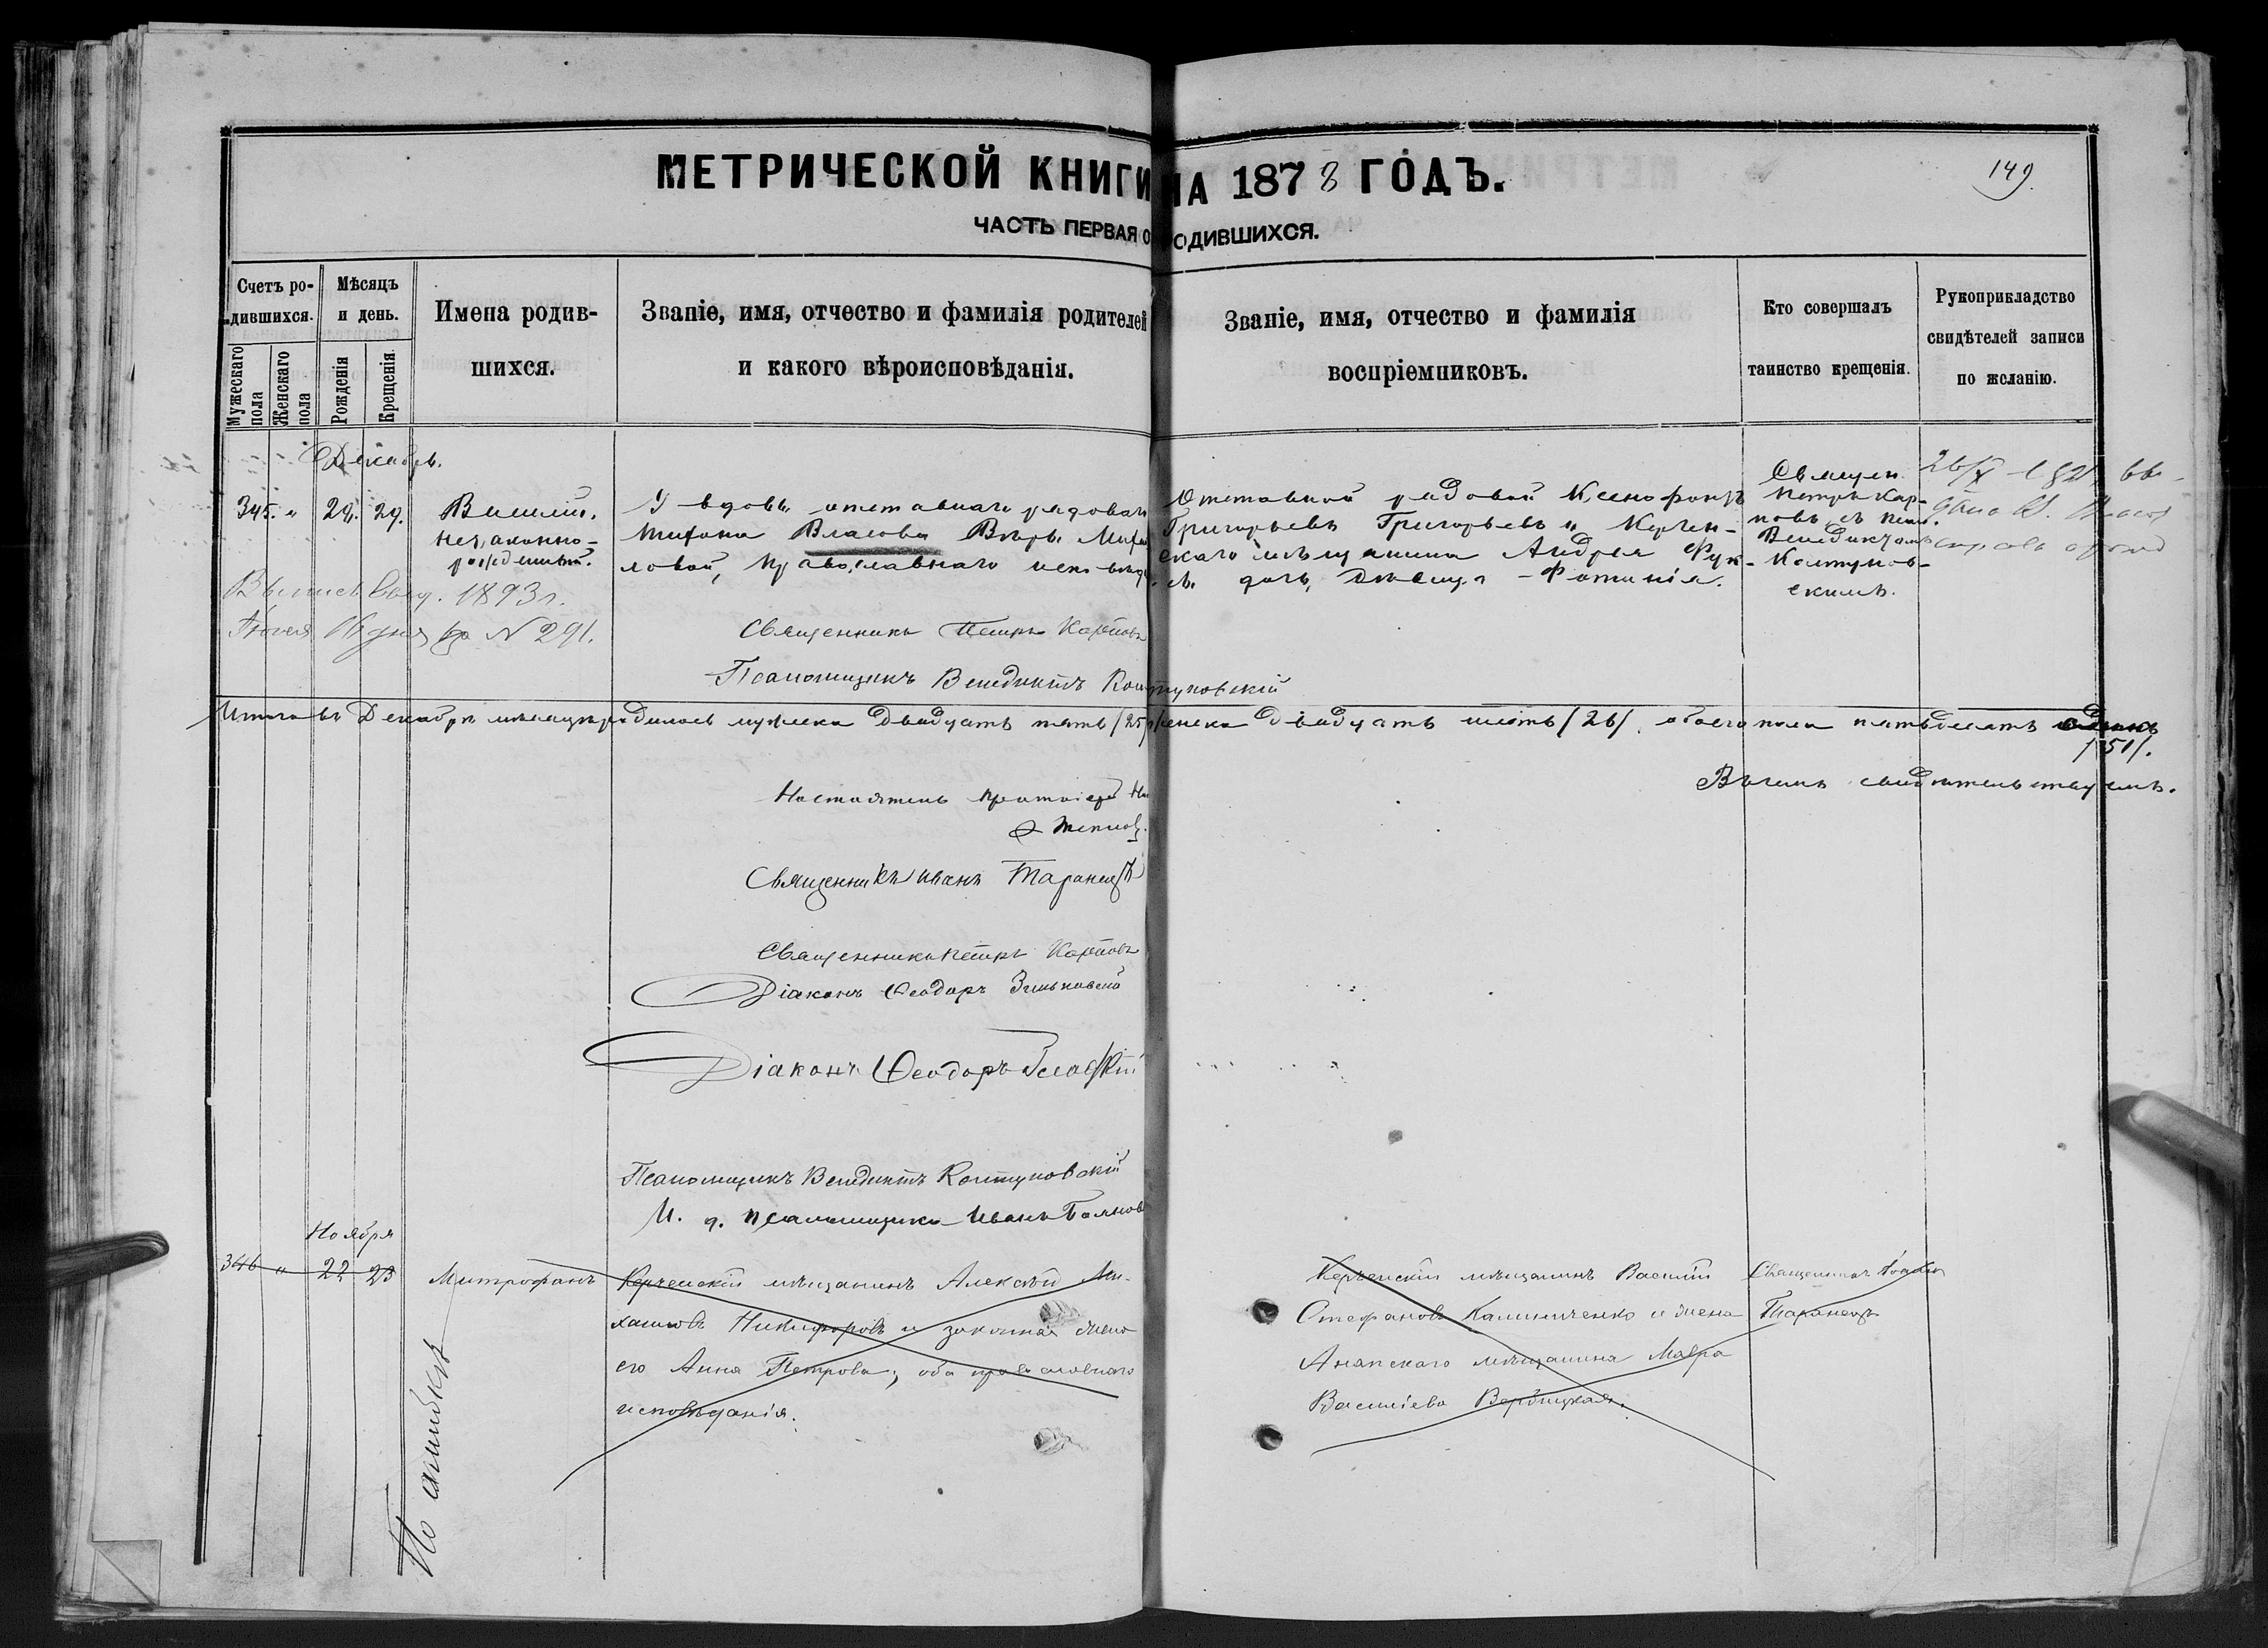 МЕТРИЧЕСКОЙ КНИГИ НА 1878 ГОДЪ.
149.
ЧАСТЬ ПЕРВАЯ О РОДИВШИХСЯ.
Счетъ ро-
дившихся.
Мужескаго пола
Женскаго пола
Мѣсяцъ
и день.
Рожденія
Крещенія.
Имена родив-
шихся.
Званіе, имя, отчество и фамилія родителей
и какого вѣроисповѣданія.
Званіе, имя, отчество и фамилія
воспріемниковъ.
Кто совершалъ
таинство крещенія.
Рукоприкладство
свидѣтелей записи
по желанію.
Декабрь.
345. " 24. 29.
Василій,
незаконно-
рожденный.
Выпись выд. 1893 г.
Іюля 16 дня за N 291.
У вдовы отставнаго рядоваго
Тифона Власова Вѣры Михай
ловой, православнаго исповѣд.
Священникъ Петръ Карповъ
Псаломщикъ Венедиктъ Колтуновскій
Отставной рядовой Ксенофонтъ
Григорьевъ Григорьевъ и Керчен-
скаго мѣщанина Андрея Фук-
са дочь, дѣвица Фотинія.
Священ.
Петръ Кар-
повъ съ псал.
Венедиктомъ
Колтунов-
скимъ.
Итого въ Декабрѣ мѣсяцѣ родилось мужеска двадцать пять /25/ женска двадцать шесть /26/. обоего пола пятьдесятъ одинъ
/51/.
Въ чемъ свидѣтельствуемъ.
Настоятель протоіерей
Священникъ Иванъ Таранецъ
Священникъ Петръ Карповъ
Діаконъ Ѳеодоръ Зеньковскій
Діаконъ Ѳеодоръ
Псаломщикъ Венедиктъ Колтуновскій
И. д. псаломщика Иванъ
Ноября
346 " 22 23
Митрофанъ
Керченскій мѣщанинъ Алексѣй Ми-
хаиловъ Никифоровъ и законная жена
его Анна Петрова; оба православнаго
исповѣданія.
Керченскій мѣщанинъ Василій
Стефановъ Калиниченко и жена
Анапскаго мѣщанина Мавра
Васильева Вербицкая.
Священникъ Іоаннъ
Таранецъ
По ошибкѣ